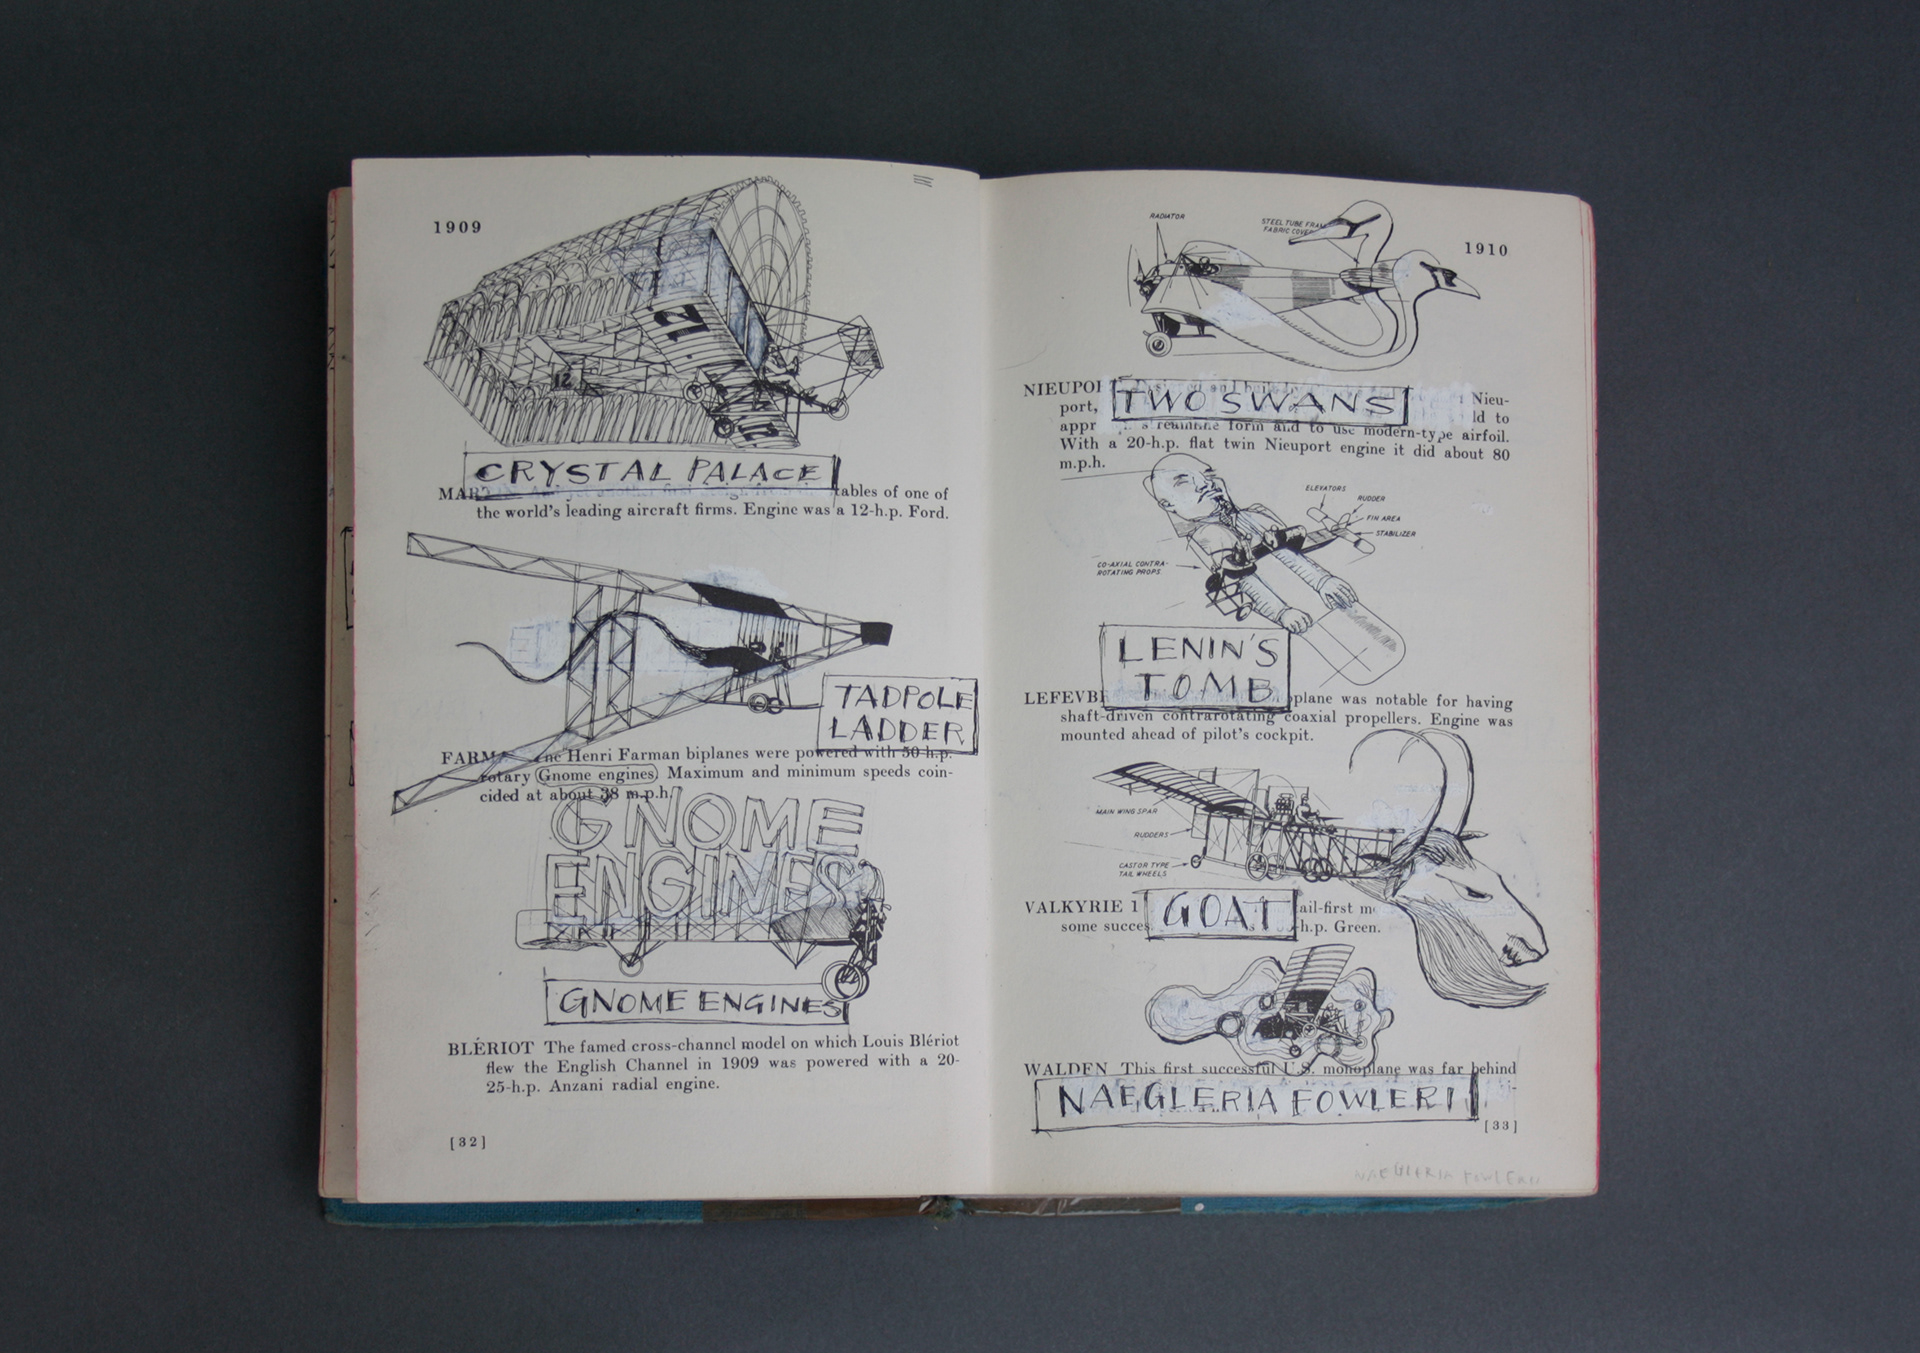 1909
12
12
CRYSTAL PALACE
tables of one of
the world's leading aircraft firms. Engine was a 12-h.p. Ford.
TADPOLE
LADDER
FARMA The Henri Farman biplanes were powered with 50-h.p.
rotary Gnome engines. Maximum and minimum speeds coin-
cided at about 38 m.p.h.
GNOME
ENGINES
GNOME ENGINES
BLÉRIOT The famed cross-channel model on which Louis Blériot
flew the English Channel in 1909 was powered with a 20-
25-h.p. Anzani radial engine.
[32]
1910
RADIATOR
STEEL TUBE FRAM
FABRIC COVE
NIEUPO Nieu-
TWO SWANS
port, ld to
appr streamline form and to use modern-type airfoil.
With a 20-h.p. flat twin Nieuport engine it did about 80
m.p.h.
ELEVATORS
RUDDER
FIN AREA
STABILIZER
CO-AXIAL CONTRA-
ROTATING PROPS.
LENIN'S
TOMB
LEFEVBR oplane was notable for having
shaft-driven contrarotating coaxial propellers. Engine was
mounted ahead of pilot's cockpit.
MAIN WING SPAR
RUDDERS
CASTOR TYPE
TAIL WHEELS
VALKYRIE 1 ail-first m
GOAT
some succes -h.p. Green.
WALDEN This first successful U.S. monoplane was far behind
NAEGLERIA FOWLERI
[33]
NAEGLERIA FOWLERII